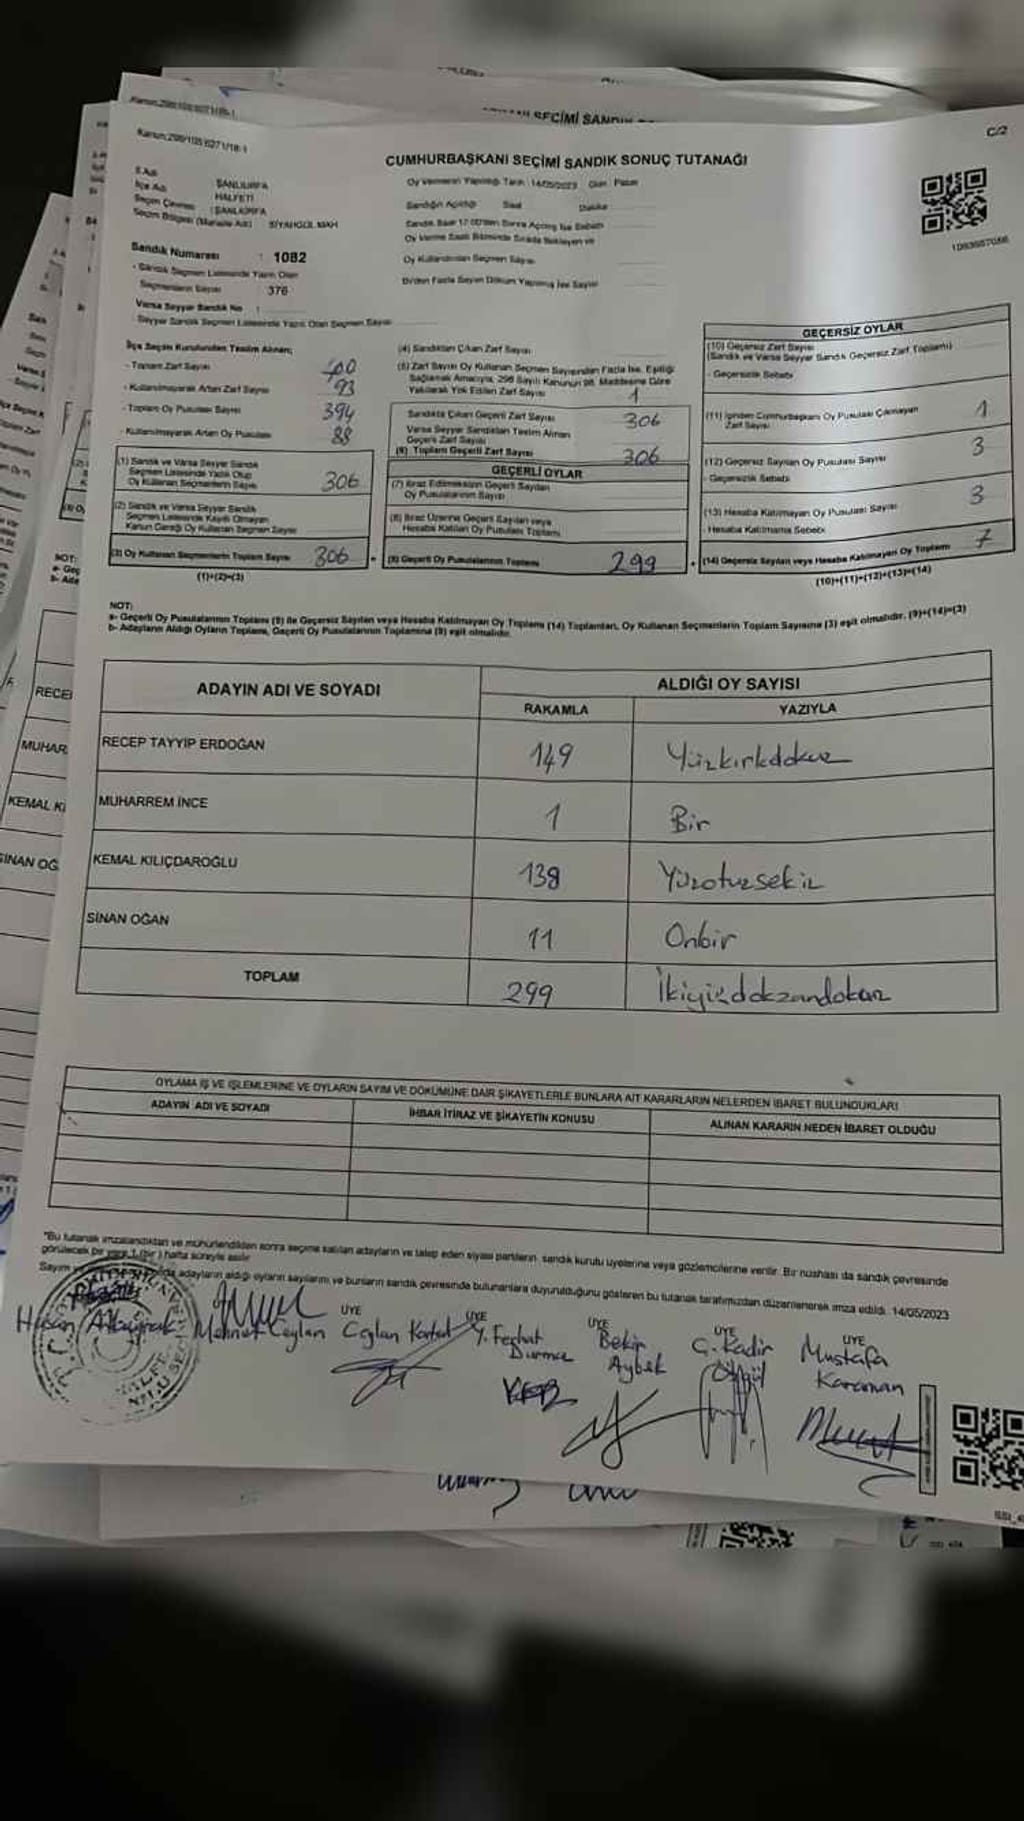 Kanun:298/105:6271/18-1
C/2
CUMHURBAŞKANI SEÇİMİ SANDIK SONUÇ TUTANAĞI
İl Adı : ŞANLIURFA
İlçe Adı : HALFETİ
Seçim Çevresi : ŞANLIURFA
Seçim Bölgesi (Mahalle Adı) : SİYAHGÜL MAH
Oy Vermenin Yapıldığı Tarih : 14/05/2023 Gün : Pazar
Sandığın Açıldığı Saat Dakika
Sandık Saat 17:00'den Sonra Açılmış İse Sebebi
Oy Verme Saati Bitiminde Sırada Bekleyen ve
Oy Kullandırılan Seçmen Sayısı
Birden Fazla Sayım Döküm Yapılmış İse Sayısı
Sandık Numarası : 1082
- Sandık Seçmen Listesinde Yazılı Olan
Seçmenlerin Sayısı : 376
Varsa Seyyar Sandık No :
Seyyar Sandık Seçmen Listesinde Yazılı Olan Seçmen Sayısı
İlçe Seçim Kurulundan Teslim Alınan;
- Toplam Zarf Sayısı 400
- Kullanılmayarak Artan Zarf Sayısı 93
- Toplam Oy Pusulası Sayısı 394
- Kullanılmayarak Artan Oy Pusulası 88
(1) Sandık ve Varsa Seyyar Sandık
Seçmen Listesinde Yazılı Olup
Oy Kullanan Seçmenlerin Sayısı 306
(2) Sandık ve Varsa Seyyar Sandık
Seçmen Listesinde Kayıtlı Olmayan
Kanun Gereği Oy Kullanan Seçmen Sayısı
(3) Oy Kullanan Seçmenlerin Toplam Sayısı 306
(1)+(2)=(3)
(4) Sandıktan Çıkan Zarf Sayısı
(5) Zarf Sayısı Oy Kullanan Seçmen Sayısından Fazla İse, Eşitliği
Sağlamak Amacıyla, 298 Sayılı Kanunun 98. Maddesine Göre
Yakılarak Yok Edilen Zarf Sayısı 1
Sandıkta Çıkan Geçerli Zarf Sayısı 306
Varsa Seyyar Sandıktan Teslim Alınan
Geçerli Zarf Sayısı
(6) Toplam Geçerli Zarf Sayısı 306
GEÇERLİ OYLAR
(7) İtiraz Edilmeksizin Geçerli Sayılan
Oy Pusulalarının Sayısı
(8) İtiraz Üzerine Geçerli Sayılan veya
Hesaba Katılan Oy Pusulası Toplamı
(9) Geçerli Oy Pusulalarının Toplamı 299
GEÇERSİZ OYLAR
(10) Geçersiz Zarf Sayısı
(Sandık ve Varsa Seyyar Sandık Geçersiz Zarf Toplamı)
- Geçersizlik Sebebi
(11) İçinden Cumhurbaşkanı Oy Pusulası Çıkmayan
Zarf Sayısı 1
(12) Geçersiz Sayılan Oy Pusulası Sayısı 3
- Geçersizlik Sebebi
(13) Hesaba Katılmayan Oy Pusulası Sayısı 3
- Hesaba Katılmama Sebebi
(14) Geçersiz Sayılan veya Hesaba Katılmayan Oy Toplamı 7
(10)+(11)+(12)+(13)=(14)
NOT:
a- Geçerli Oy Pusulalarının Toplamı (9) ile Geçersiz Sayılan veya Hesaba Katılmayan Oy Toplamı (14) Toplamları, Oy Kullanan Seçmenlerin Toplam Sayısına (3) eşit olmalıdır. (9)+(14)=(3)
b- Adayların Aldığı Oyların Toplamı, Geçerli Oy Pusulalarının Toplamına (9) eşit olmalıdır.
ADAYIN ADI VE SOYADI
ALDIĞI OY SAYISI
RAKAMLA YAZIYLA
RECEP TAYYİP ERDOĞAN 149 Yüzkırkdokuz
MUHARREM İNCE 1 Bir
KEMAL KILIÇDAROĞLU 138 Yüzotuzsekiz
SİNAN OĞAN 11 Onbir
TOPLAM 299 İkiyüzdokzandokuz
OYLAMA İŞ VE İŞLEMLERİNE VE OYLARIN SAYIM VE DÖKÜMÜNE DAİR ŞİKAYETLERLE BUNLARA AİT KARARLARIN NELERDEN İBARET BULUNDUKLARI
ADAYIN ADI VE SOYADI
İHBAR İTİRAZ VE ŞİKAYETİN KONUSU
ALINAN KARARIN NEDEN İBARET OLDUĞU
*Bu tutanak imzalandıktan ve mühürlendikten sonra seçime katılan adayların ve talep eden siyasi partilerin, sandık kurulu üyelerine veya gözlemcilerine verilir. Bir nüshası da sandık çevresinde
görülecek bir yere 1 (bir) hafta süreyle asılır.
adayların aldığı oyların sayılarını ve bunların sandık çevresinde bulunanlara duyurulduğunu gösteren bu tutanak tarafımızdan düzenlenerek imza edildi. 14/05/2023
ÜYE ÜYE ÜYE ÜYE ÜYE
Hasan Albayrak Mehmet Ceylan Çağlan Kartal Y. Ferhat Durmaz Bekir Aybek G. Kadir Öngül Mustafa Karaman